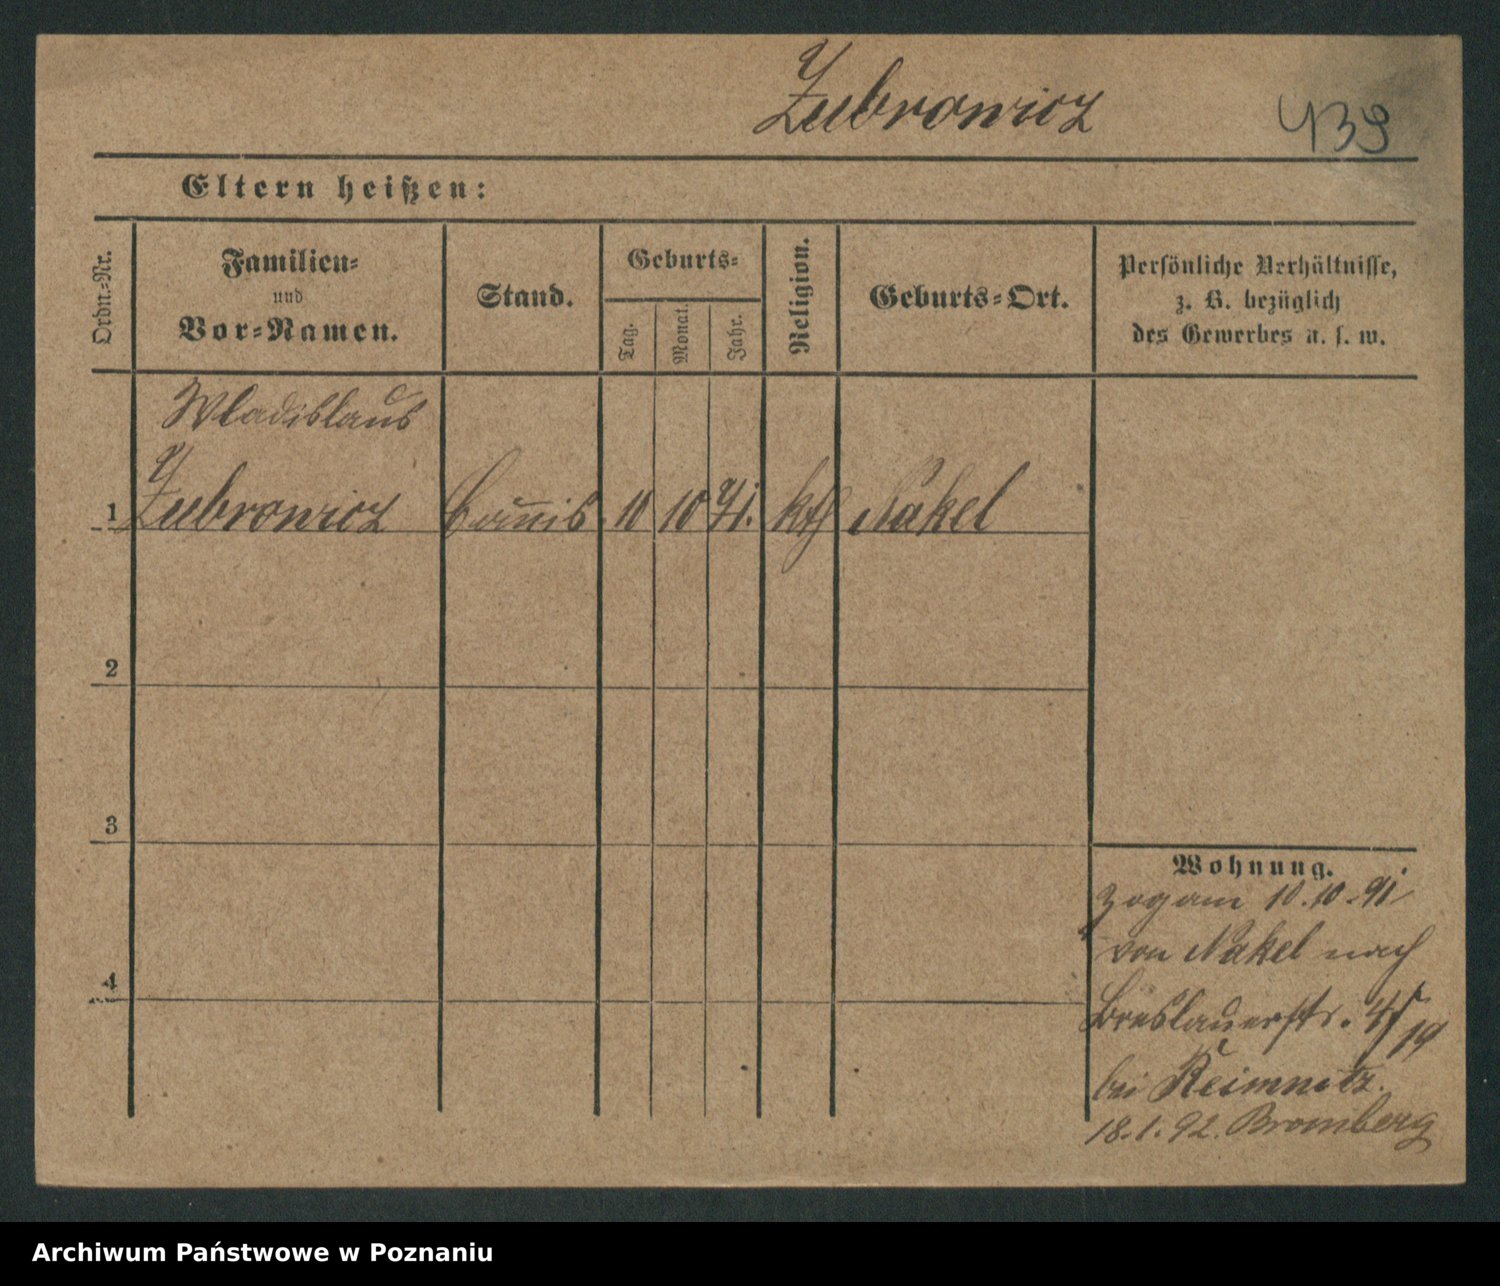 Zubrowicz
439
Eltern heißen:
Ordn.-Nr.
Familien-
und
Vor-Namen.
Stand.
Geburts-
Tag.
Monat.
Jahr.
Religion.
Geburts-Ort.
Persönliche Verhältnisse,
z. B. bezüglich
des Gewerbes u. s. w.
Wladislaus
1 Zubrowicz Comis 10 10 71. kth Nakel
2
3
4
Wohnung.
Zog am 10.10.91
von Nakel nach
Breslauerstr. 19
bei Reimnitz.
18.1.92. Bromberg
Archiwum Państwowe w Poznaniu